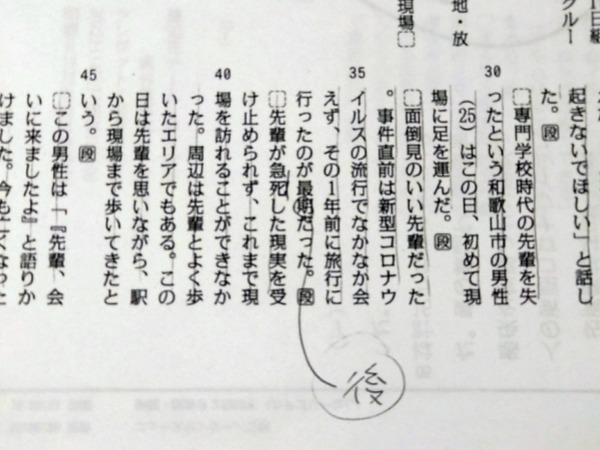 グルー
地・放
現場
起きないでほしい」と話し
た。段
30
専門学校時代の先輩を失
ったという和歌山市の男性
(25)はこの日、初めて現
場に足を運んだ。段
面倒見のいい先輩だった
。事件直前は新型コロナウ
35
イルスの流行でなかなか会
えず、その1年前に旅行に
行ったのが最期だった。段
後
先輩が急死した現実を受
け止められず、これまで現
40
場を訪れることができなか
った。周辺は先輩とよく歩
いたエリアでもある。この
日は先輩を思いながら、駅
から現場まで歩いてきたと
45
いう。段
この男性は「『先輩、会
いに来ましたよ』と語りか
けました。今も亡くなった